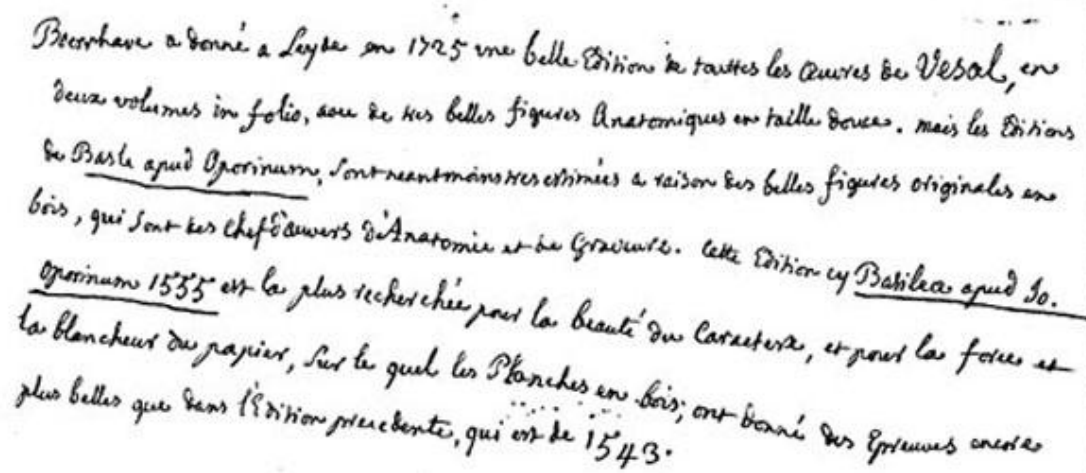 Boerrhave a donné a Leyde en 1725 une belle Edition de touttes les Œuvres de Vesal, en
deux volumes in folio, avec de tres belles figures Anatomiques en taille douce. mais les Editions
de Basle apud Oporinum, sont neantmoins tres estimées a raison des belles figures originales en
bois, qui sont des chef d'œuvers d'Anatomie et de Gravure. Cette Edition cy Basileæ apud Jo.
Oporinum 1555 est la plus recherchée pour la beauté du Caractere, et pour la force et
la blancheur du papier, sur le quel les Planches en bois, ont donné des Epreuves encore
plus belles que dans l'Edition precedente, qui est de 1543.